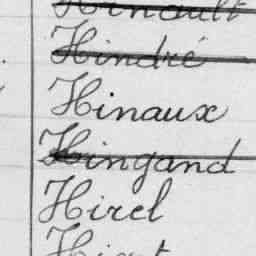 Hinault
Hindré
Hinaux
Hingand
Hirel